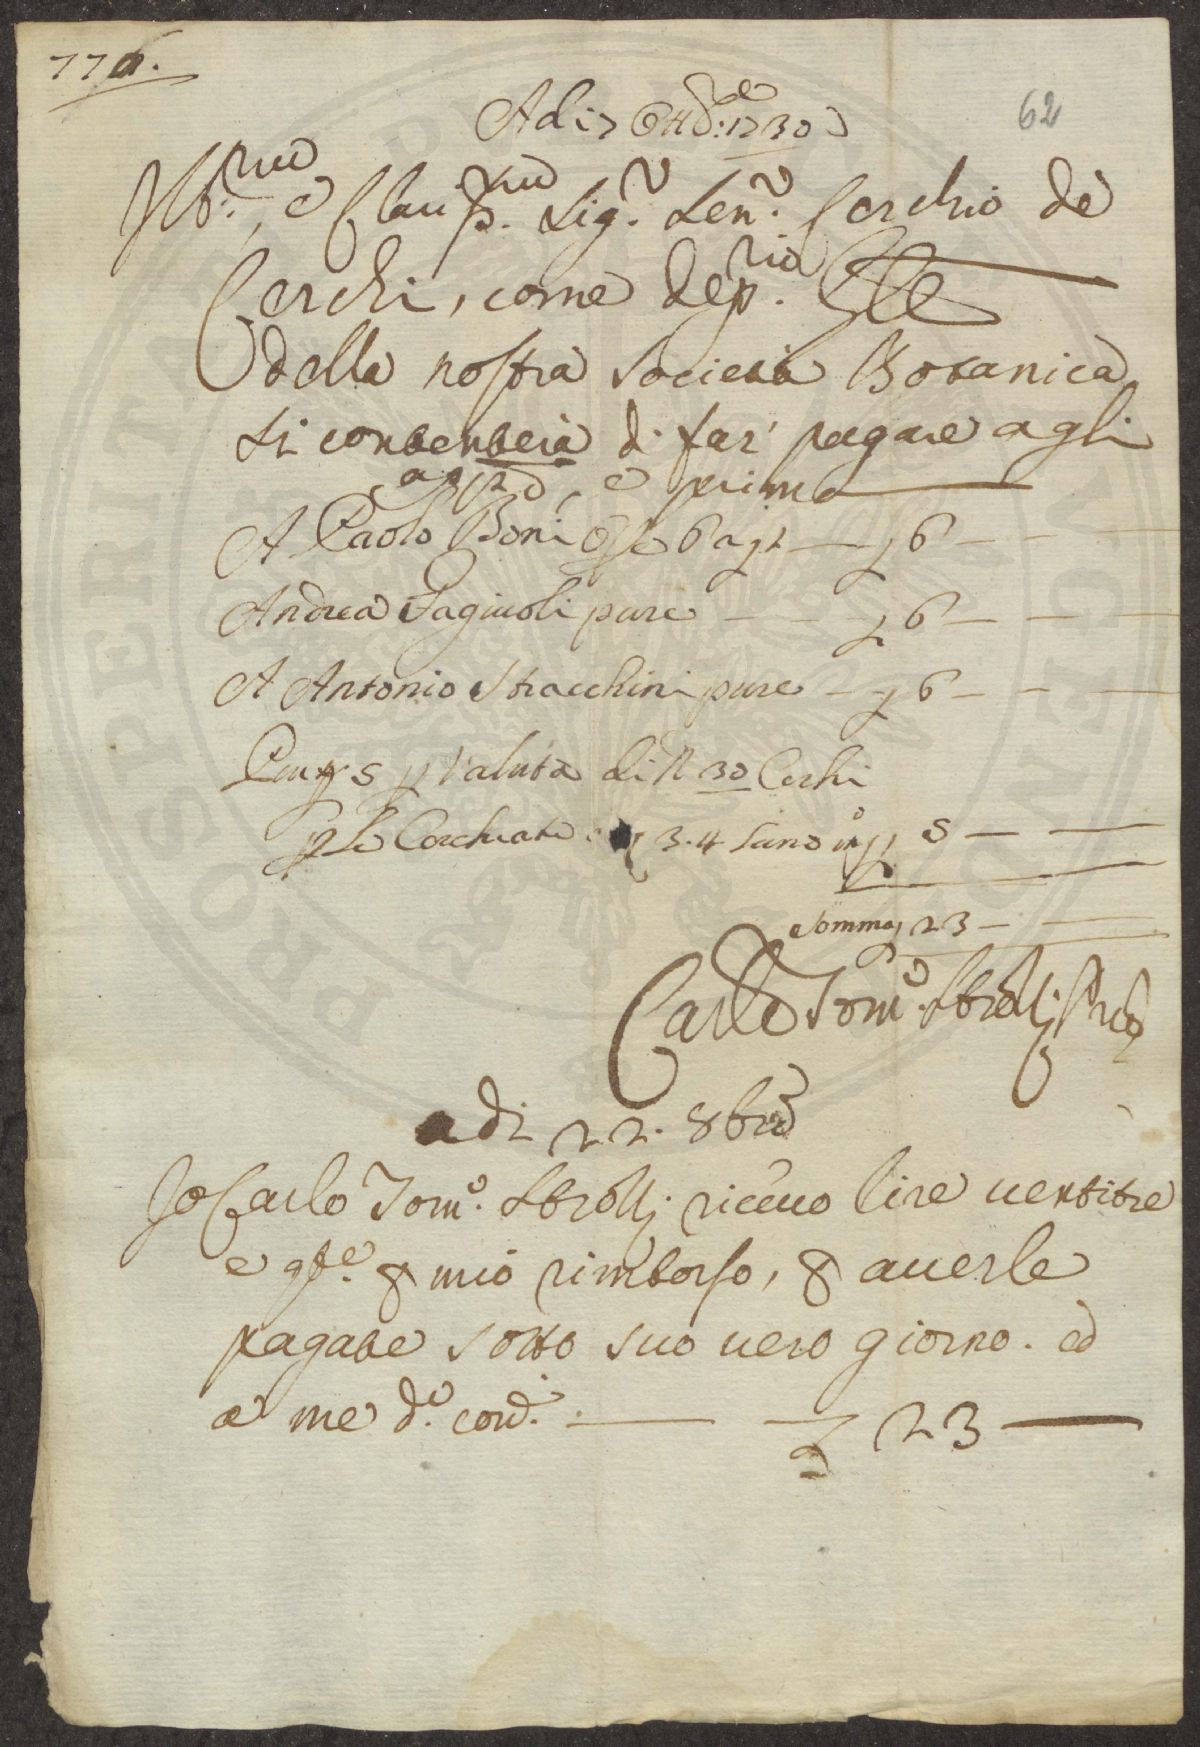 776.
62
Adi 7 Ott.e 1730
Ill.mo, e Clariss.mo Sig.r Sen.r Cerchio de
Cerchi, come Dep.rio
della nostra Società Botanica
si contenterà di far' pagare agli
app.o, e prima
A Paolo Boni 6 6
Andrea Fagiuoli pure 6
A Antonio Stracchini pure 6
valuta di N 30 Cerchi
Cerchiati 3.4 sono in 5
Somma 23
Carlo Tom.o Strozzi
adi 22. 8bre
Io Carlo Tom.o Strozzi riceuo lire uentitre
e q.ste p mio rimborso, p auerle
pagate sotto suo uero giorno. ed
a me d.o cont.
23